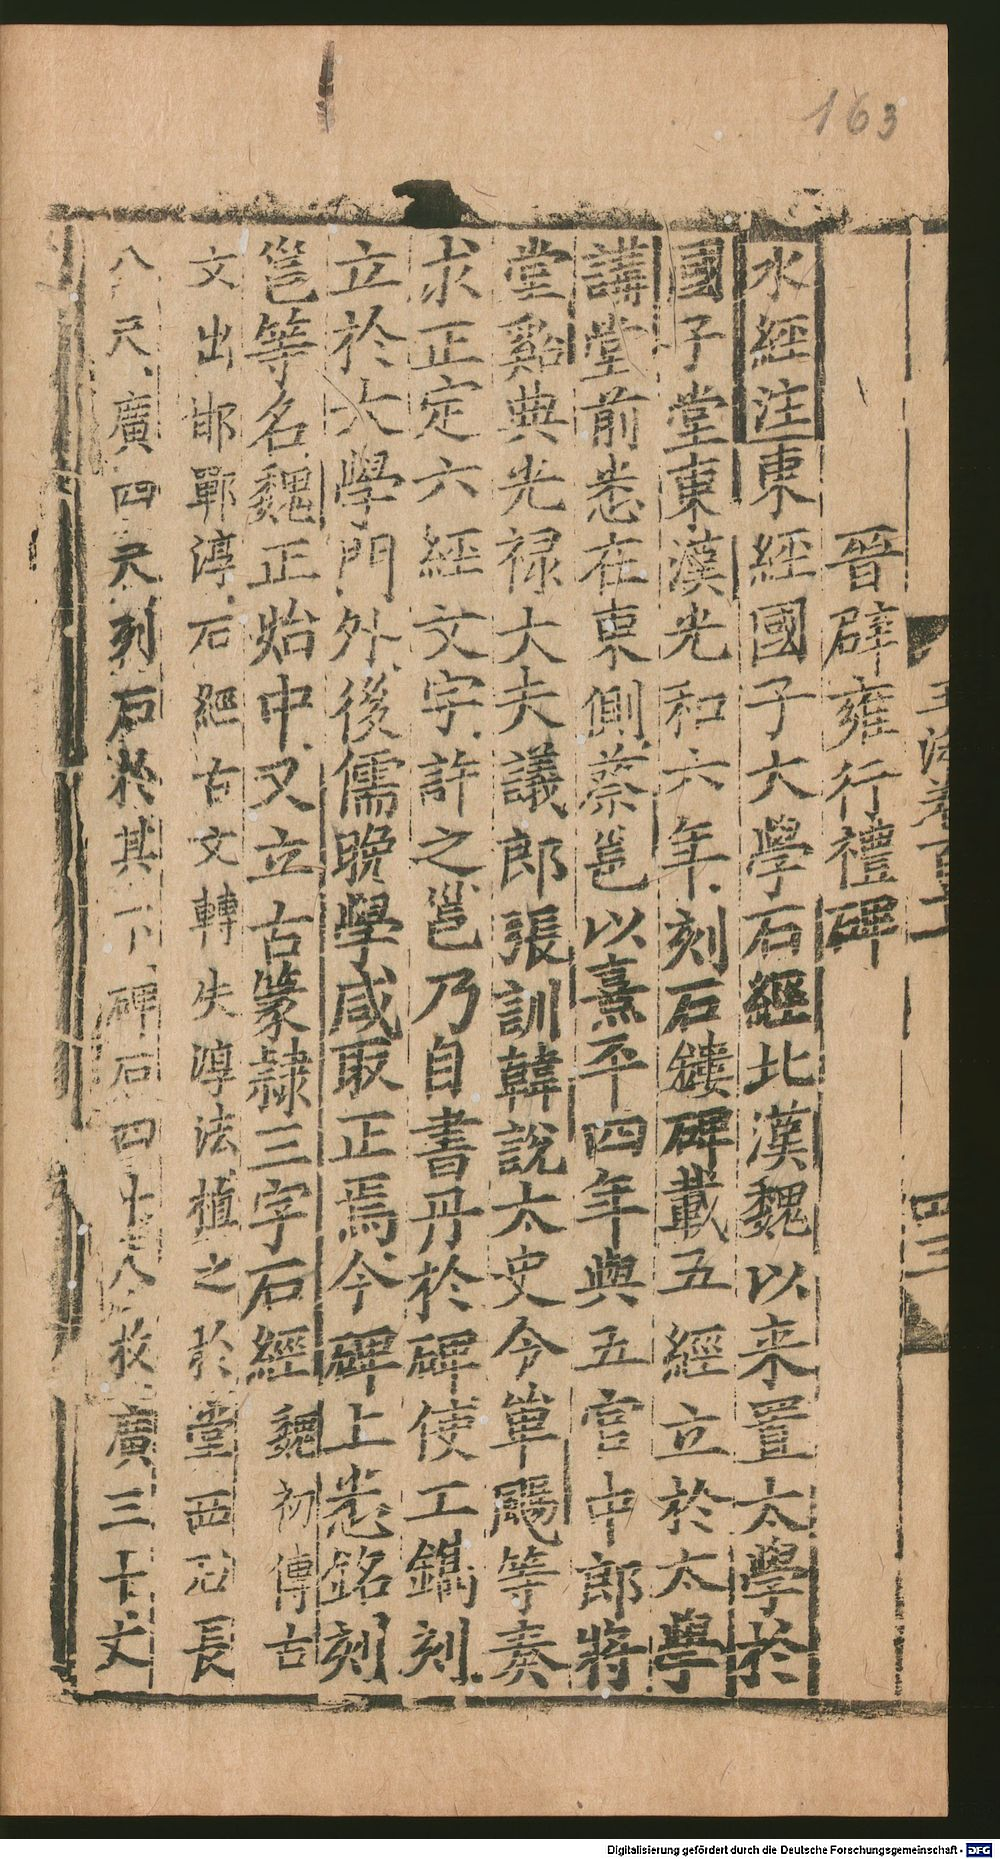 163
晉辟雍行禮碑
水經注東經國子大學石經北漢魏以来置太學於
國子堂東漢光和六年刻石鏤碑載五經立於太學
講堂前悉在東側蔡邕以熹平四年與五官中郎將
堂谿典光祿大夫議郎張訓韓說太史令單颺等奏
求正定六經文字許之邕乃自書丹於碑使工鐫刻
立於大學門外後儒晚學咸取正焉今碑上悉銘刻
邕等名魏正始中又立古篆隸三字石經魏初傳古
文出邯鄲淳石經古文轉失淳法植之於堂西石長
八尺廣四尺刻石於其下碑石四十八枚廣三十丈
四三
Digitalisierung gefördert durch die Deutsche Forschungsgemeinschaft - DFG